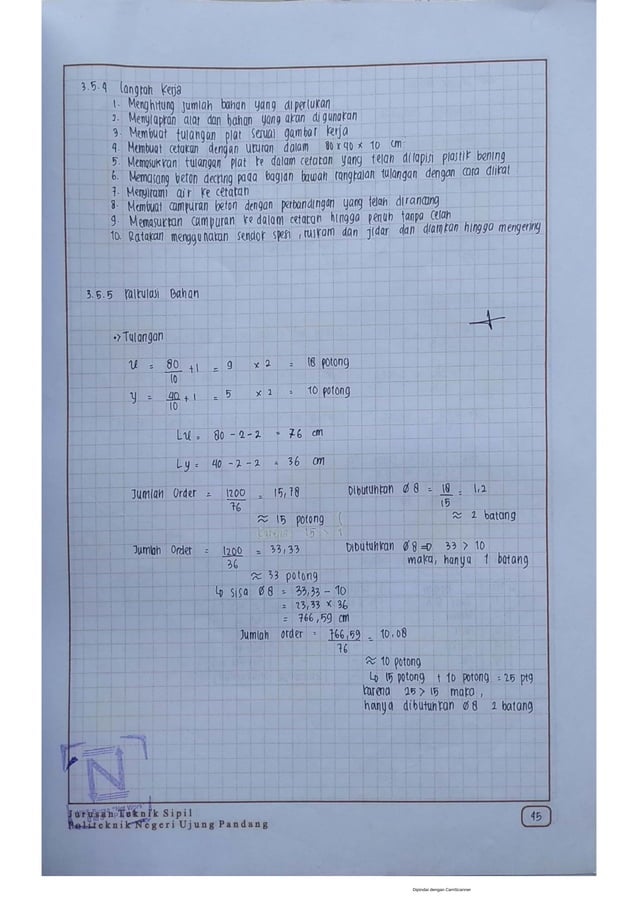 3.5.4 Langkah Kerja
1. Menghitung jumlah bahan yang diperlukan
2. Menyiapkan alat dan bahan yang akan digunakan
3. Membuat tulangan plat sesuai gambar kerja
4. Membuat cetakan dengan ukuran dalam 80 x 40 x 10 cm
5. Memasukkan tulangan plat ke dalam cetakan yang telah dilapisi plastik bening
6. Memasang beton decking pada bagian bawah rangkaian tulangan dengan cara diikat
7. Menyirami air ke cetakan
8. Membuat campuran beton dengan perbandingan yang telah dirancang
9. Memasukkan campuran ke dalam cetakan hingga penuh tanpa celah
10. Ratakan menggunakan sendok spesi, ruskam dan jidar dan diamkan hingga mengering
3.5.5 Kalkulasi Bahan
•> Tulangan
x = 80/10 + 1 = 9 x 2 = 18 potong
y = 40/10 + 1 = 5 x 2 = 10 potong
Lx = 80 - 2 - 2 = 76 cm
Ly = 40 - 2 - 2 = 36 cm
Jumlah Order = 1200/76 = 15,78 Dibutuhkan Ø 8 = 18/15 = 1,2
≈ 15 potong ≈ 2 batang
Jumlah Order = 1200/36 = 33,33 Dibutuhkan Ø 8 => 33 > 10
≈ 33 potong maka, hanya 1 batang
↳ sisa Ø 8 = 33,33 - 10
= 23,33 x 36
= 766,59 cm
Jumlah order = 766,59/76 = 10.08
≈ 10 potong
↳ 15 potong + 10 potong = 25 ptg
karena 25 > 15 maka,
hanya dibutuhkan Ø 8 2 batang
Jurusan Teknik Sipil
Politeknik Negeri Ujung Pandang
45
Dipindai dengan CamScanner